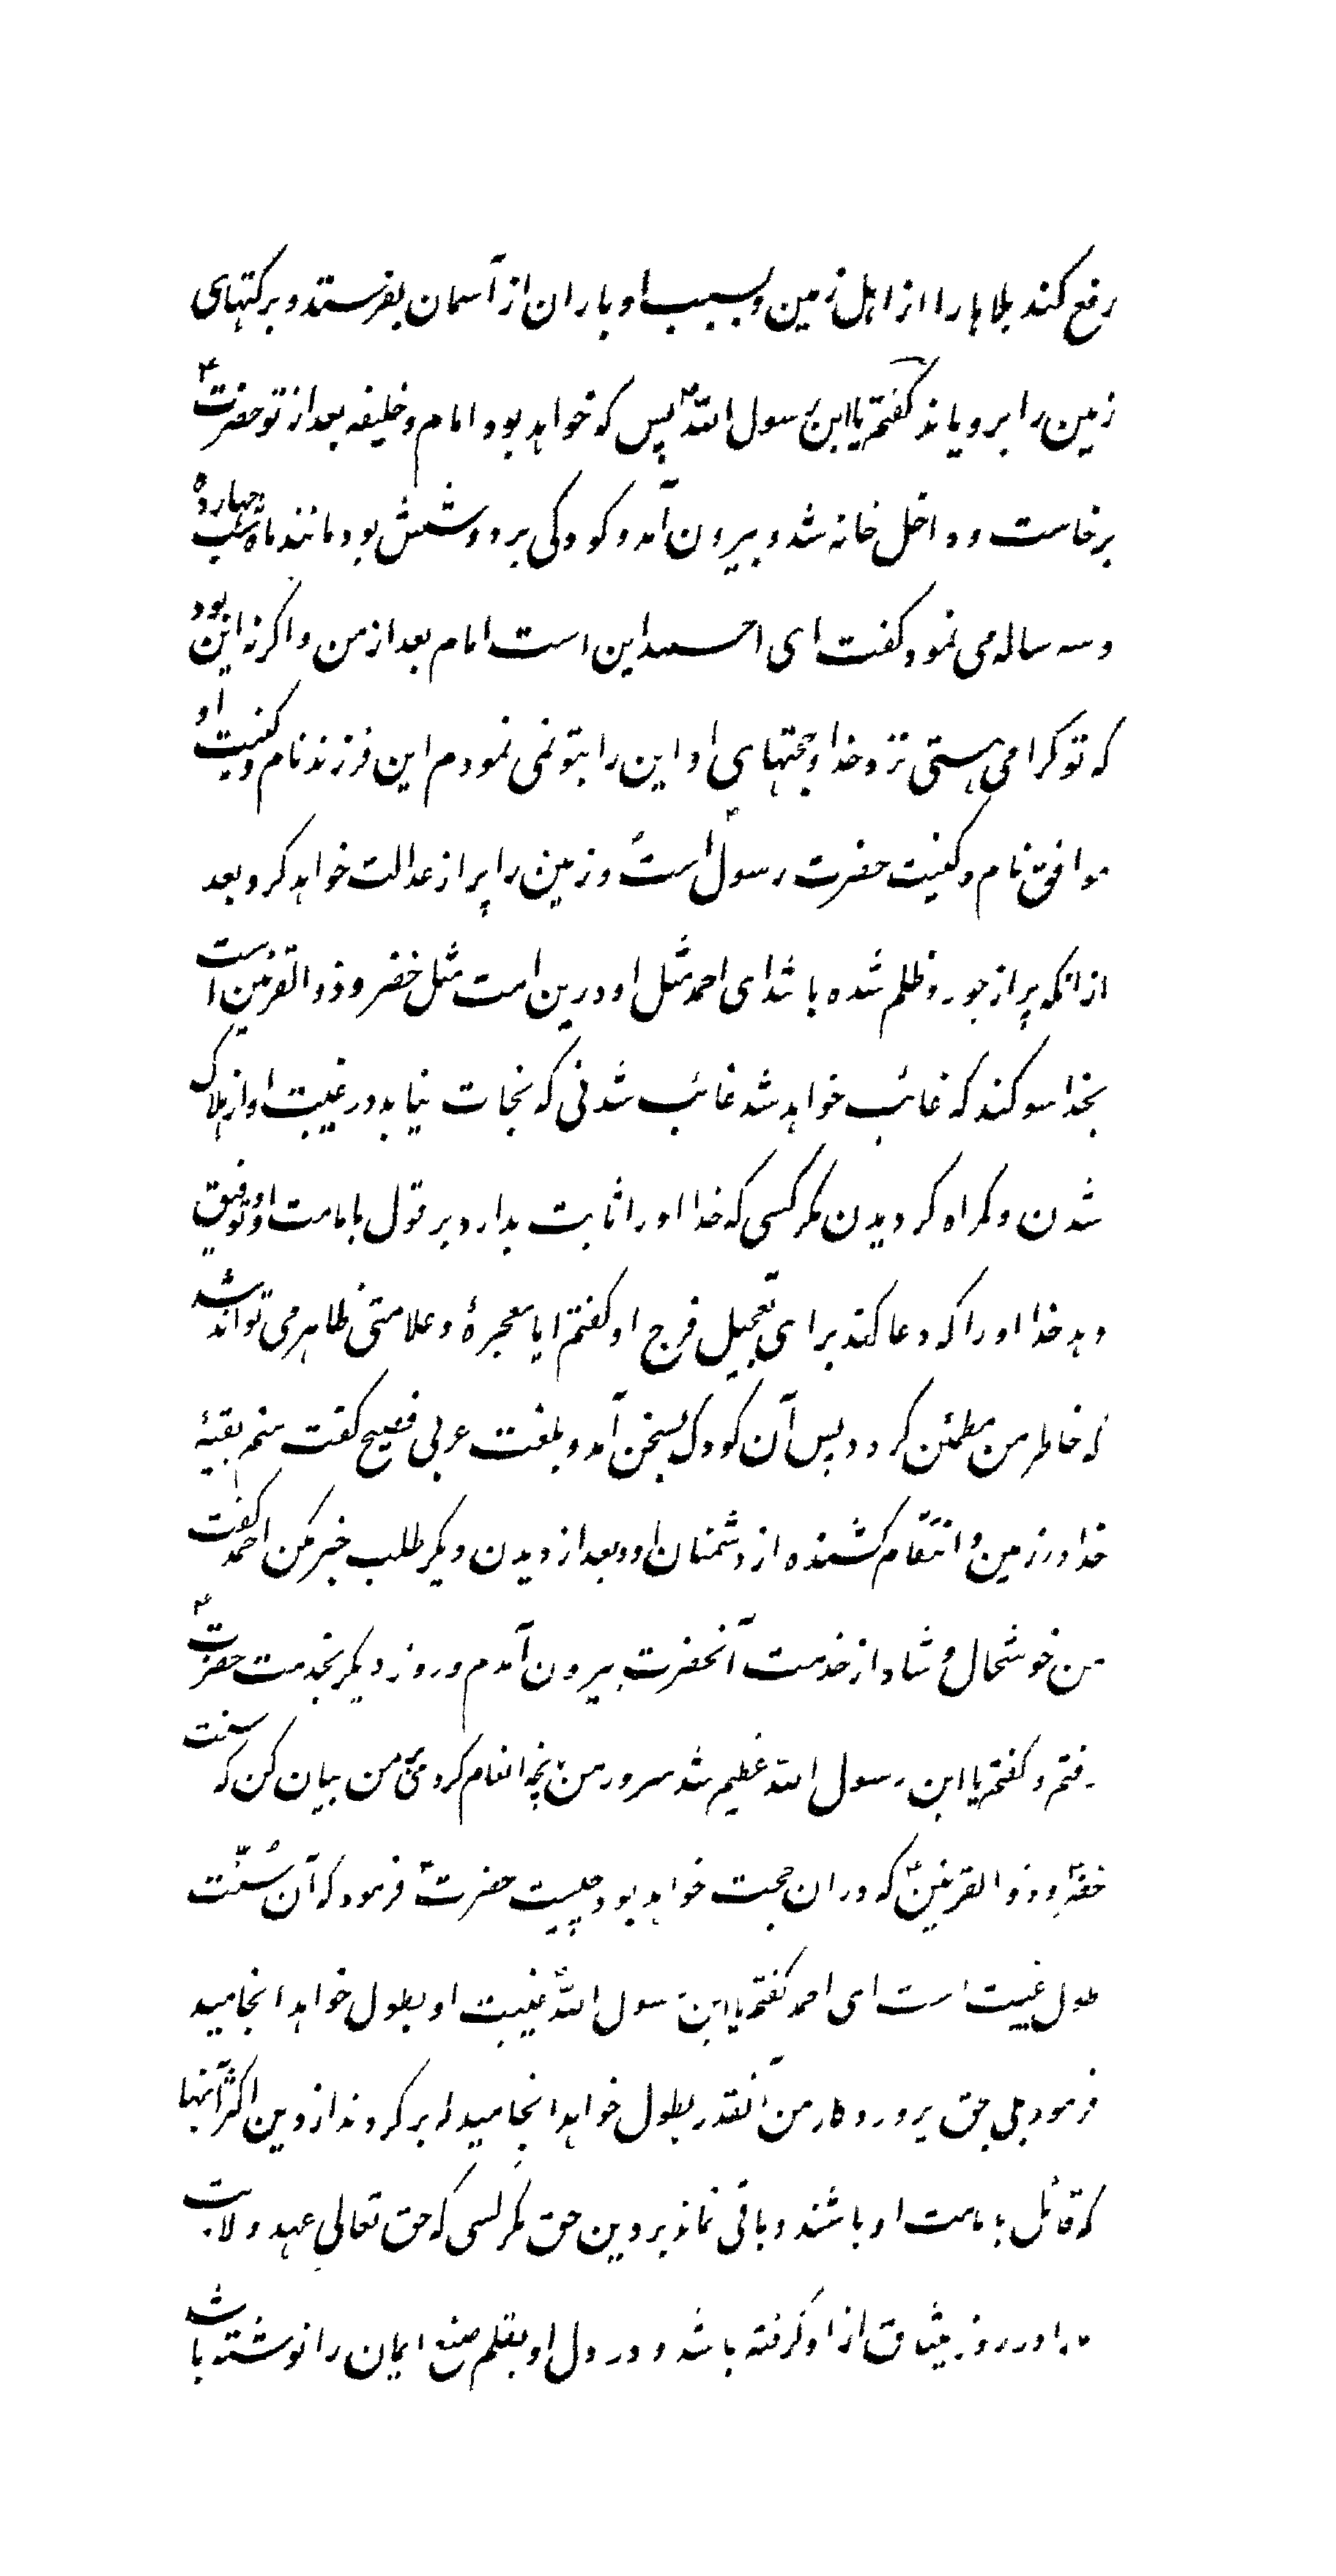 رفع کند بلاها را از اهل زمین و بسبب او باران از آسمان بفرستد و برکتهای
زمین را برویاند گفتم یا ابن رسول الله ؐ پس که خواهد بود امام و خلیفه بعد از تو حضرت ؑ
برخاست و داخل خانه شد و بیرون آمد و کودکی بر دوشش بود مانند ماه شب چهارده
و سه ساله می نمود گفت ای احمد این است امام بعد از من و اگر نه این بود
که تو گرامی هستی نزد خدا و حجتهای او این را بتو نمی نمودم این فرزند نام و کنیت او
موافق نام و کنیت حضرت رسول است و زمین را پر از عدالت خواهد کرد بعد
از انکه پر از جور و ظلم شده باشد ای احمد مثل او درین امت مثل خضر و ذو القرنین است
بخدا سوکند که غائب خواهد شد غائب شدنی که نجات نیابد در غیبت او از هلاک
شدن و گمراه گردیدن مگر کسی که خدا او را ثابت بدارد بر قول بامامت او و توفیق
دهد خدا او را که دعا کند برای تعجیل فرج او گفتم ایا معجزهٔ و علامتی ظاهر می تواند شد
که خاطر من مطمئن گردد پس آن کودک بسخن آمد و بلغت عربی فصیح گفت منم بقیهٔ
خدا در زمین و انتقام کشنده از دشمنان او و بعد از دیدن دیگر طلب خبر مکن احمد گفت
من خوشحال و شاد از خدمت آنحضرت بیرون آمدم و روز دیگر بخدمت حضرت ؑ
رفتم و گفتم یا ابن رسول الله عظیم شد سرور من بانچه انعام کردی من بیان کن که سنت
خضر ؑ و ذو القرنین ؑ که دران حجت خواهد بود چیست حضرت ؑ فرمود که آن سُنّت
طول غیبت است ای احمد گفتم یا ابن رسول الله ؐ غیبت او بطول خواهد انجامید
فرمود بلی بحق پروردگار من آنقدر بطول خواهد انجامید که بر گردند از دین اکثر آنها
که قائل بامامت او باشند و باقی نماند بر دین حق مگر کسی که حق تعالی عهد ولایت
ما را در روز میثاق از او گرفته باشد و در دل او بقلم صنع ایمان را نوشته باشد